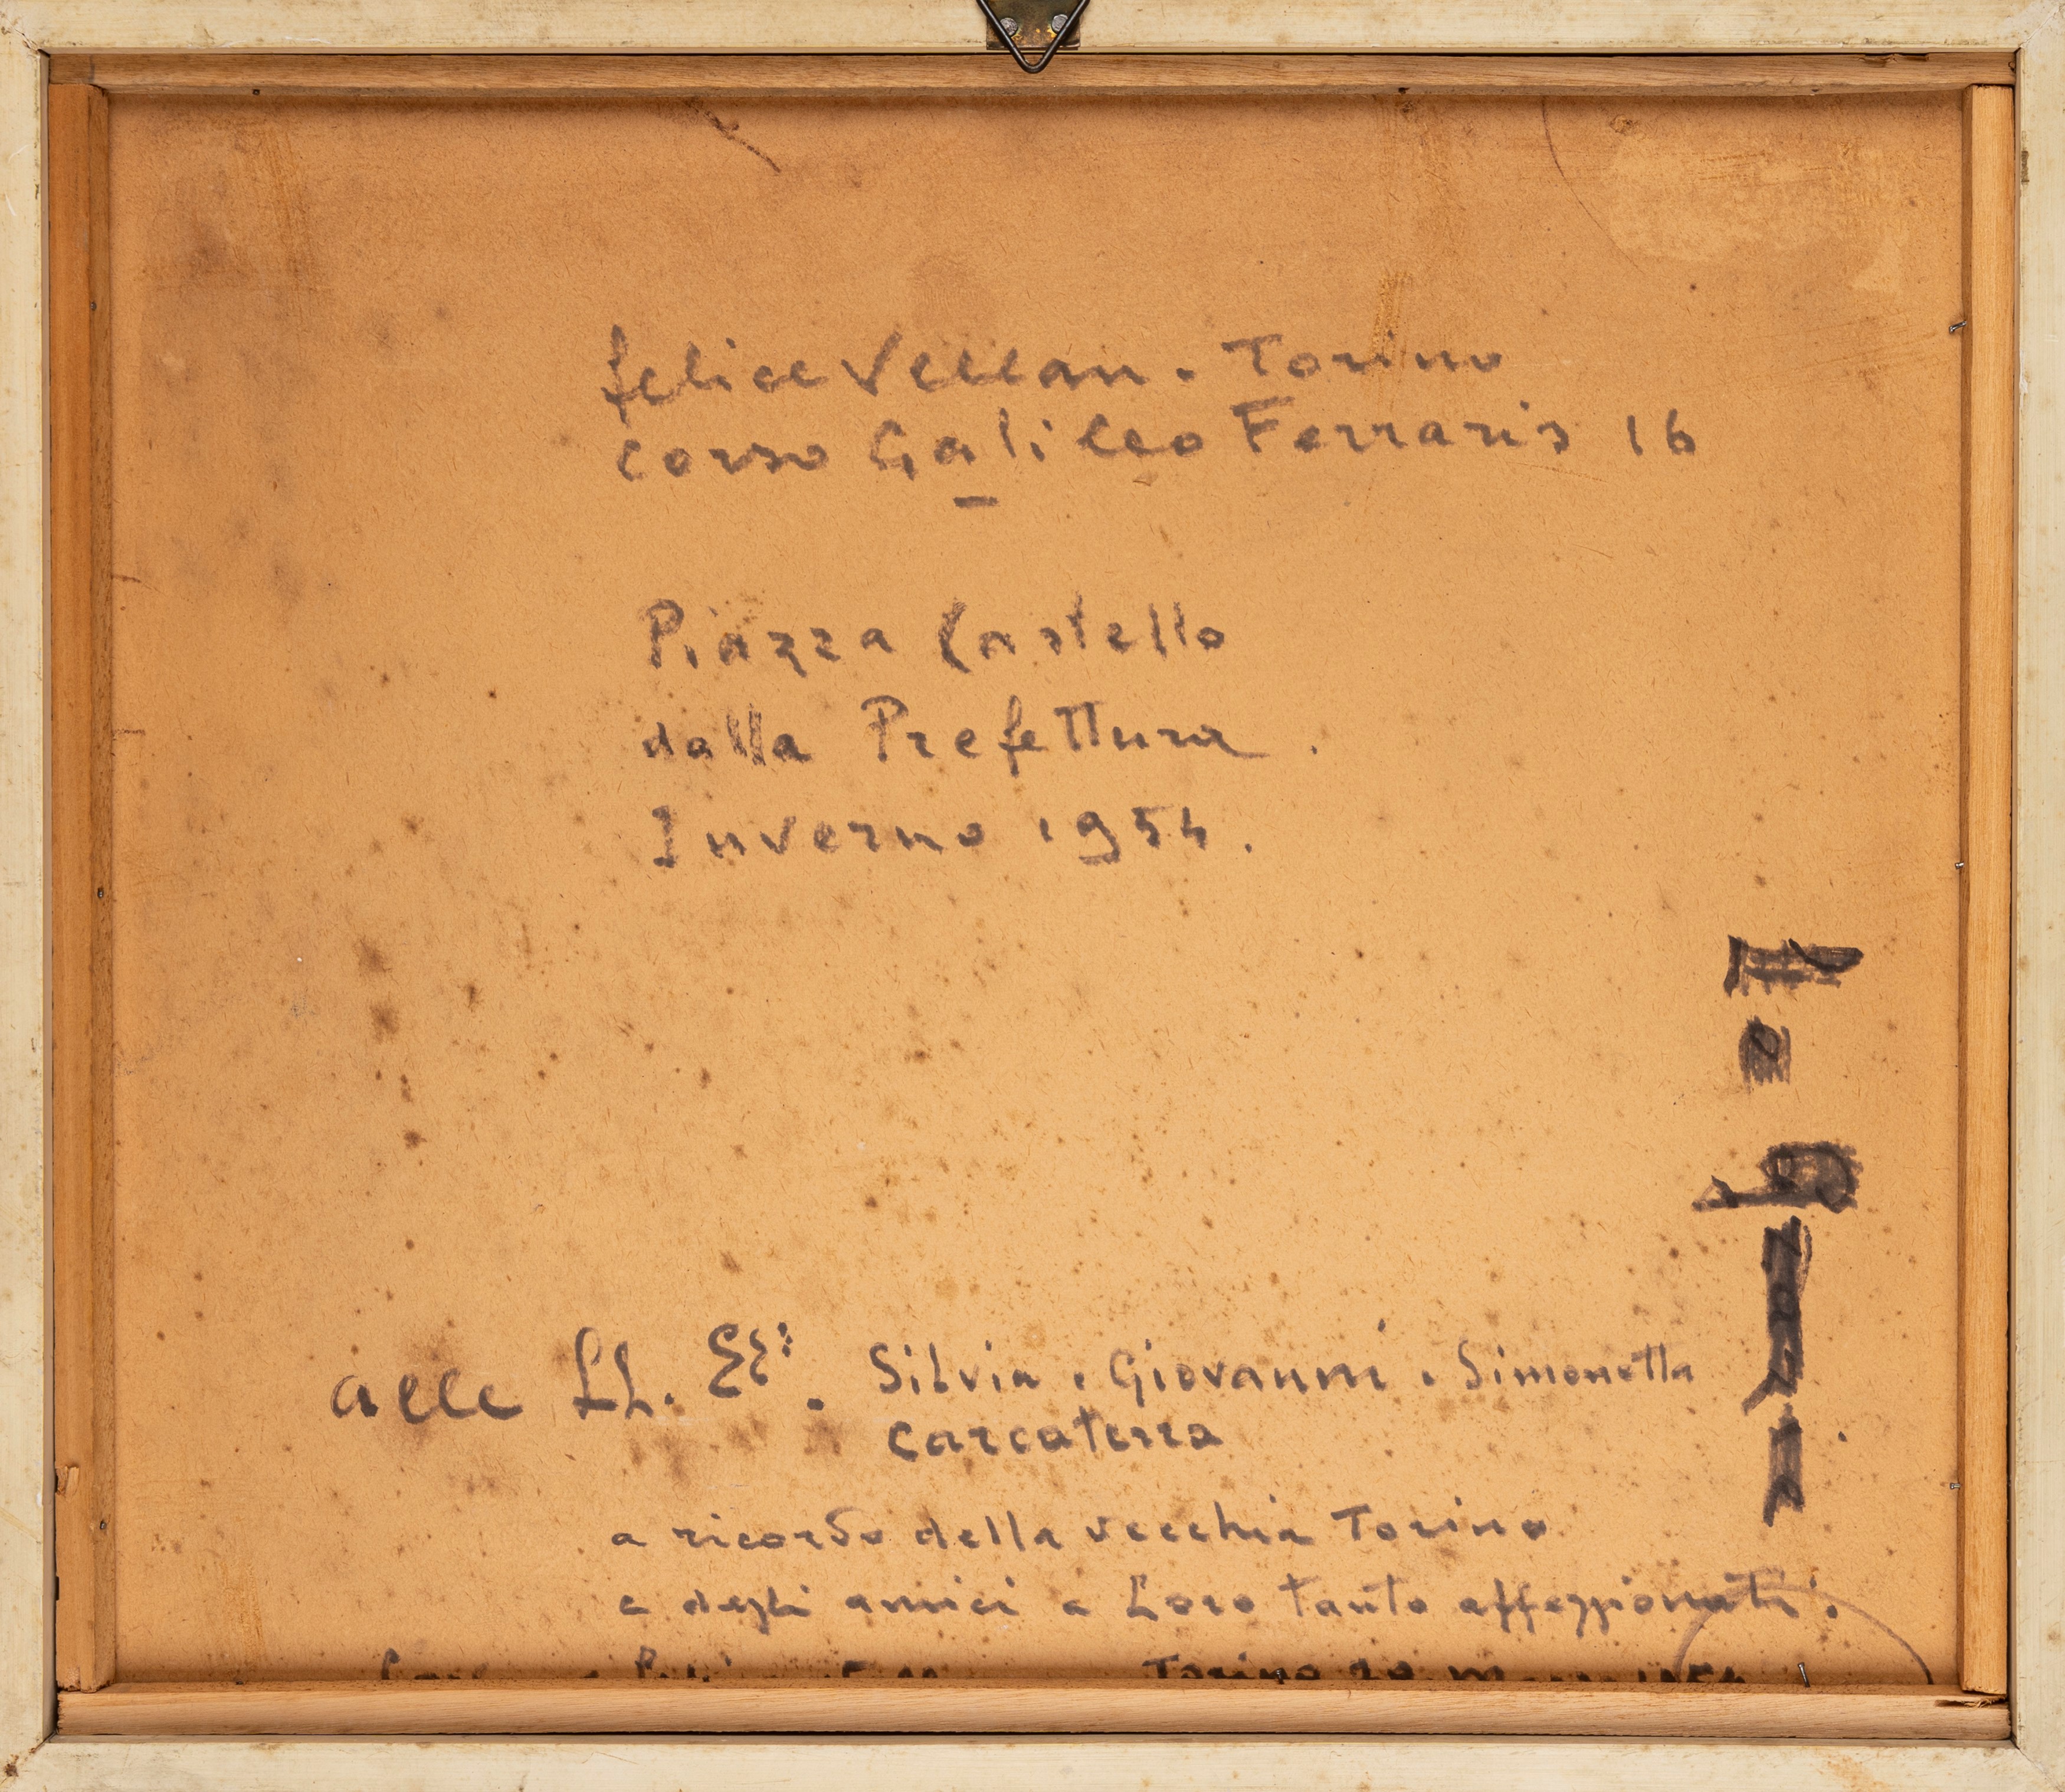 felice Vellan. Torino
corso Galileo Ferraris 16
Piazza Castello
dalla Prefettura.
Inverno 1954.
alle LL. EE:. Silvia e Giovanni e Simonetta
Carcaterra
a ricordo della vecchia Torino
e degli amici a Loro tanto affezzionati.
Torino 1954